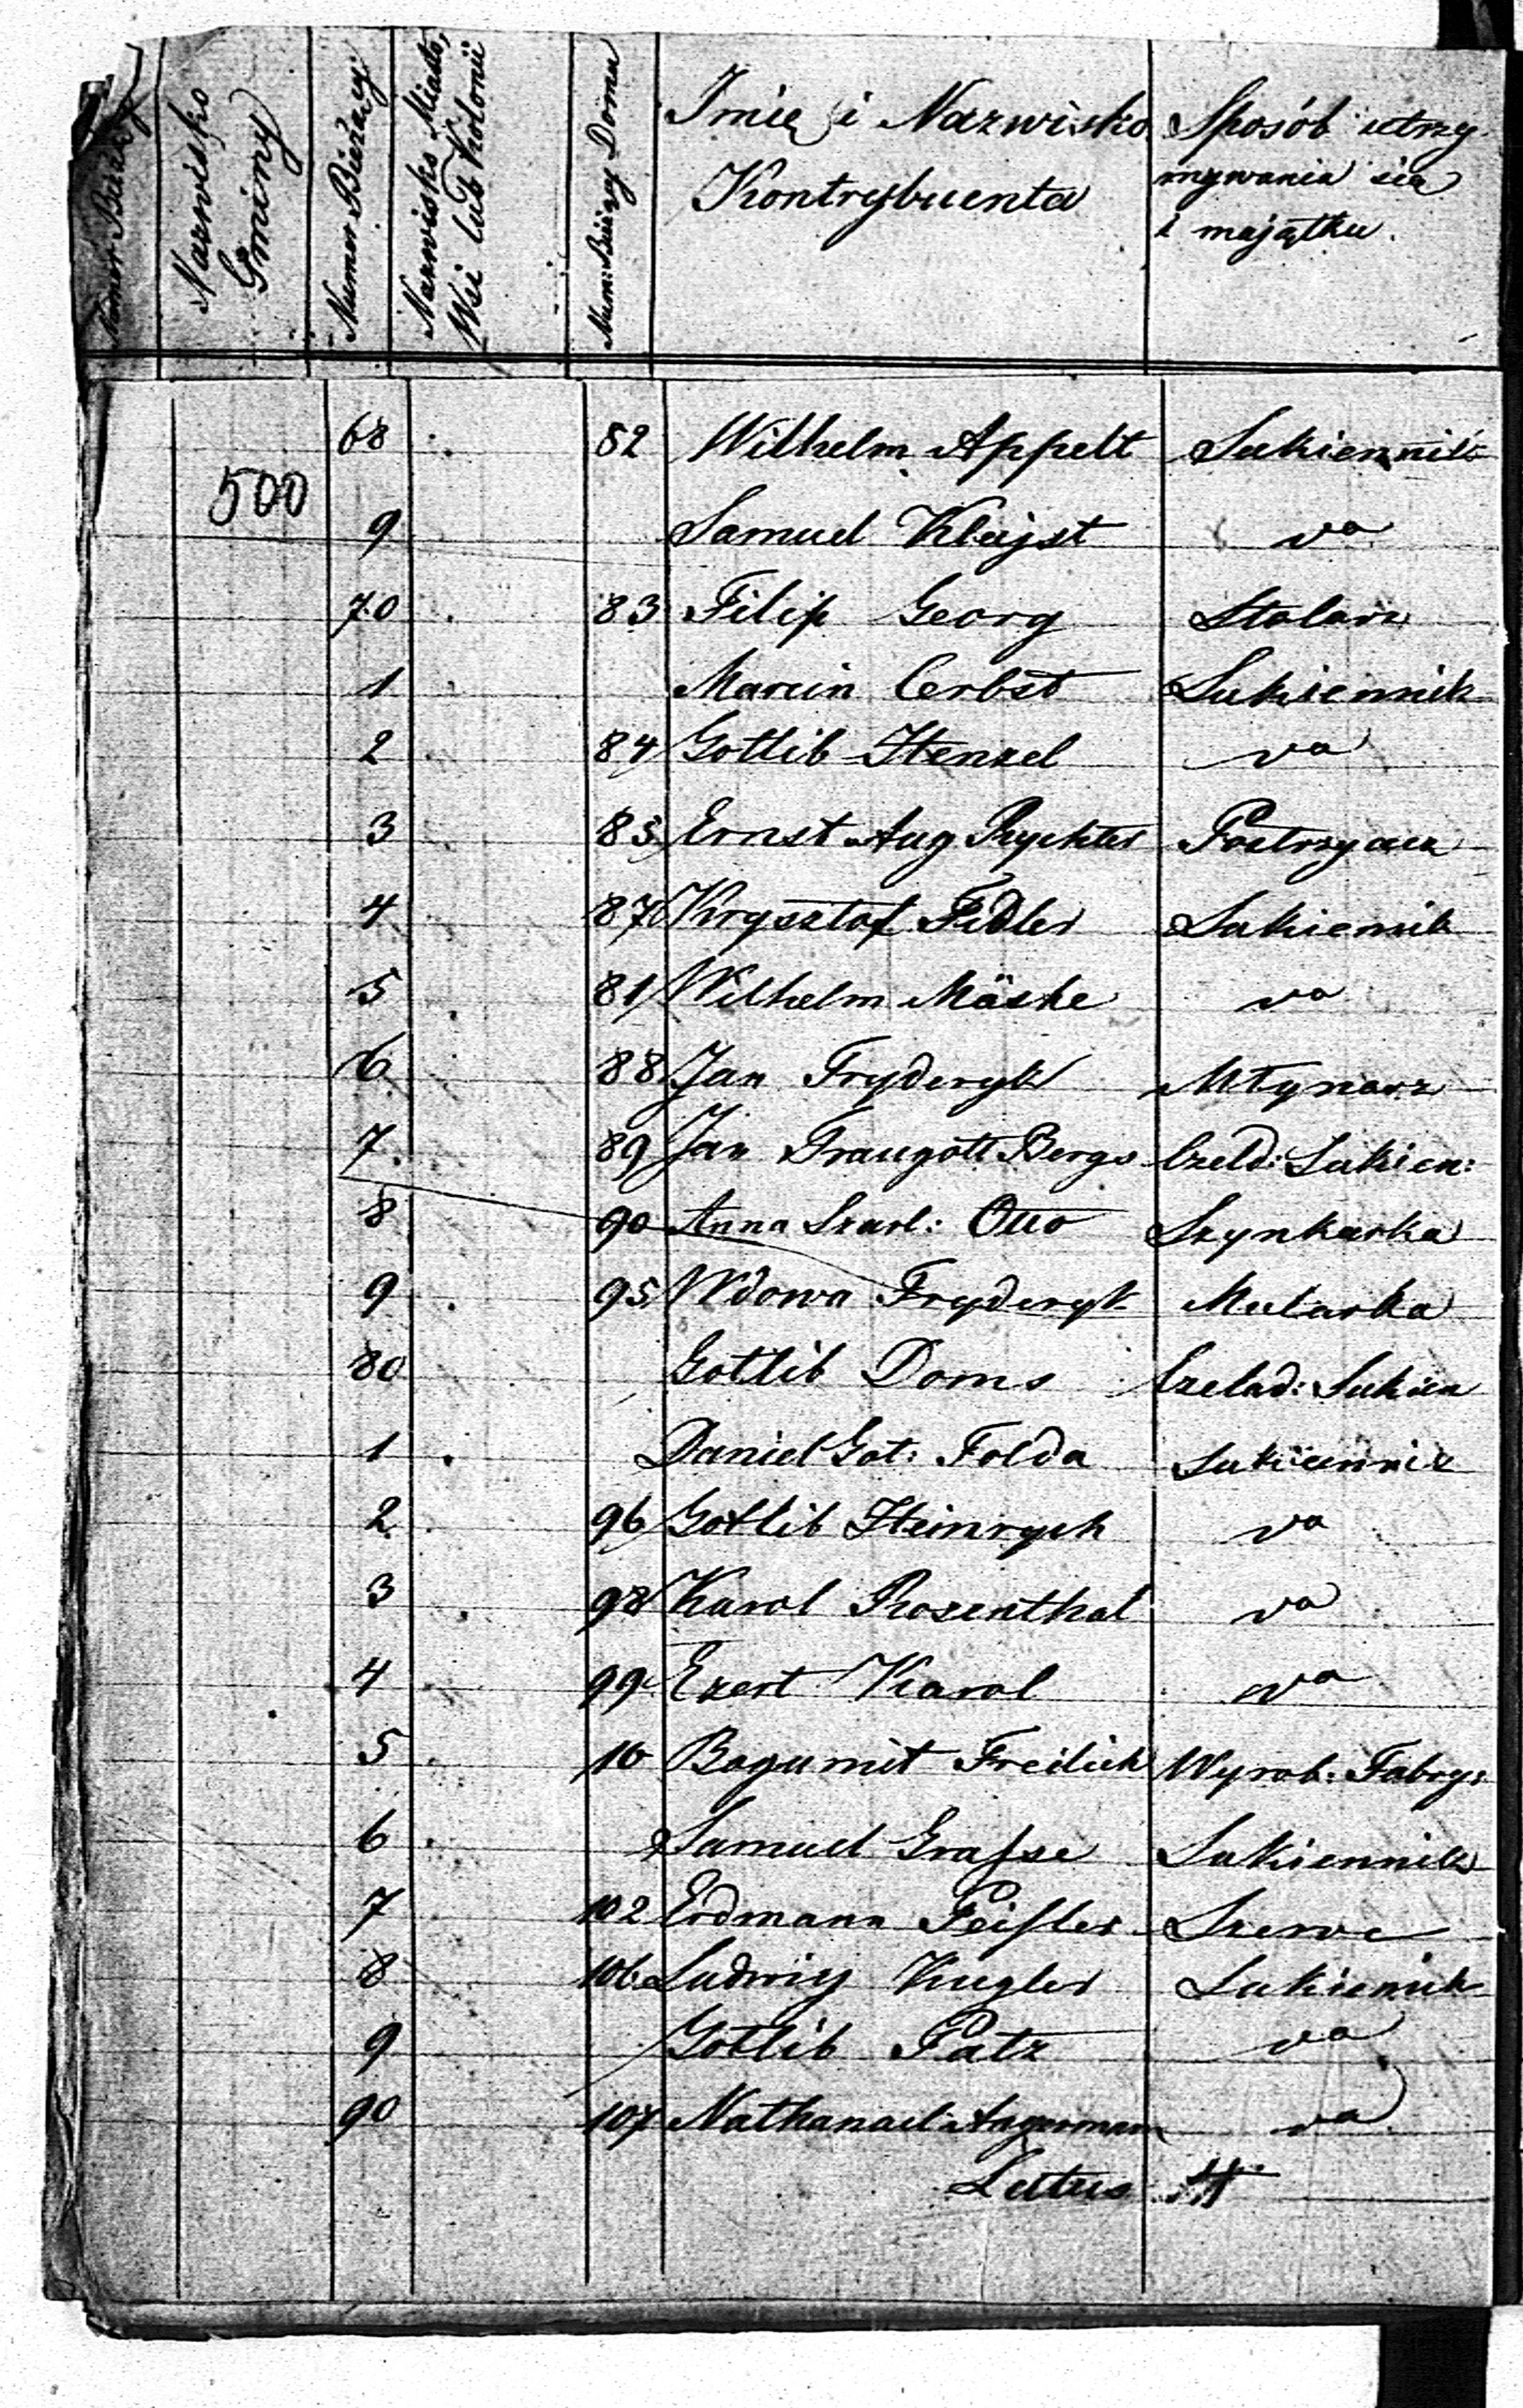 Numer Bieżący
Nazwisko
Gminy
Numer Bieżący
Nazwisko Miasta,
Wsi lub Kolonii
Num: Bieżący Domu
Imię i Nazwisko
Kontrybuenta
Sposób utrzy
mywania się
i majątku.
68 82 Wilhelm Appelt Sukiennik
500
9 Samuel Klajst va
70 83 Filip Georg Stolarz
1 Marcin Cerbst Sukiennik
2 84 Gotlib Henzel va
3 85 Ernst Aug Rychter Postrzygacz
4 87 Krysztof Fidler Sukiennik
5 81 Wilhelm Mäske va
6 88 Jan Fryderyk Młynarz
7. 89 Jan Traugott Bergs Czeld: Sukien:
8 90 Anna Szarl: Otto Szynkarka
9 95 Wdowa Fryderyk Mularka
80 Gotlib Doms Czelad: Sukien
1 Daniel Got: Folda Sukiennik
2 96 Gotlib Heinrych va
3 98 Karol Rosenthal va
4 99 Ezert Karol va
5 16 Bogumił Freilich Wyrob: Fabry:
6 Samuel Grasse Sukiennik
7 102 Erdmann Feisler Szewc
8 106 Ludwig Kugler Sukiennik
9 Gotlib Patz va
90 107 Nathanael Angerman va
Latus